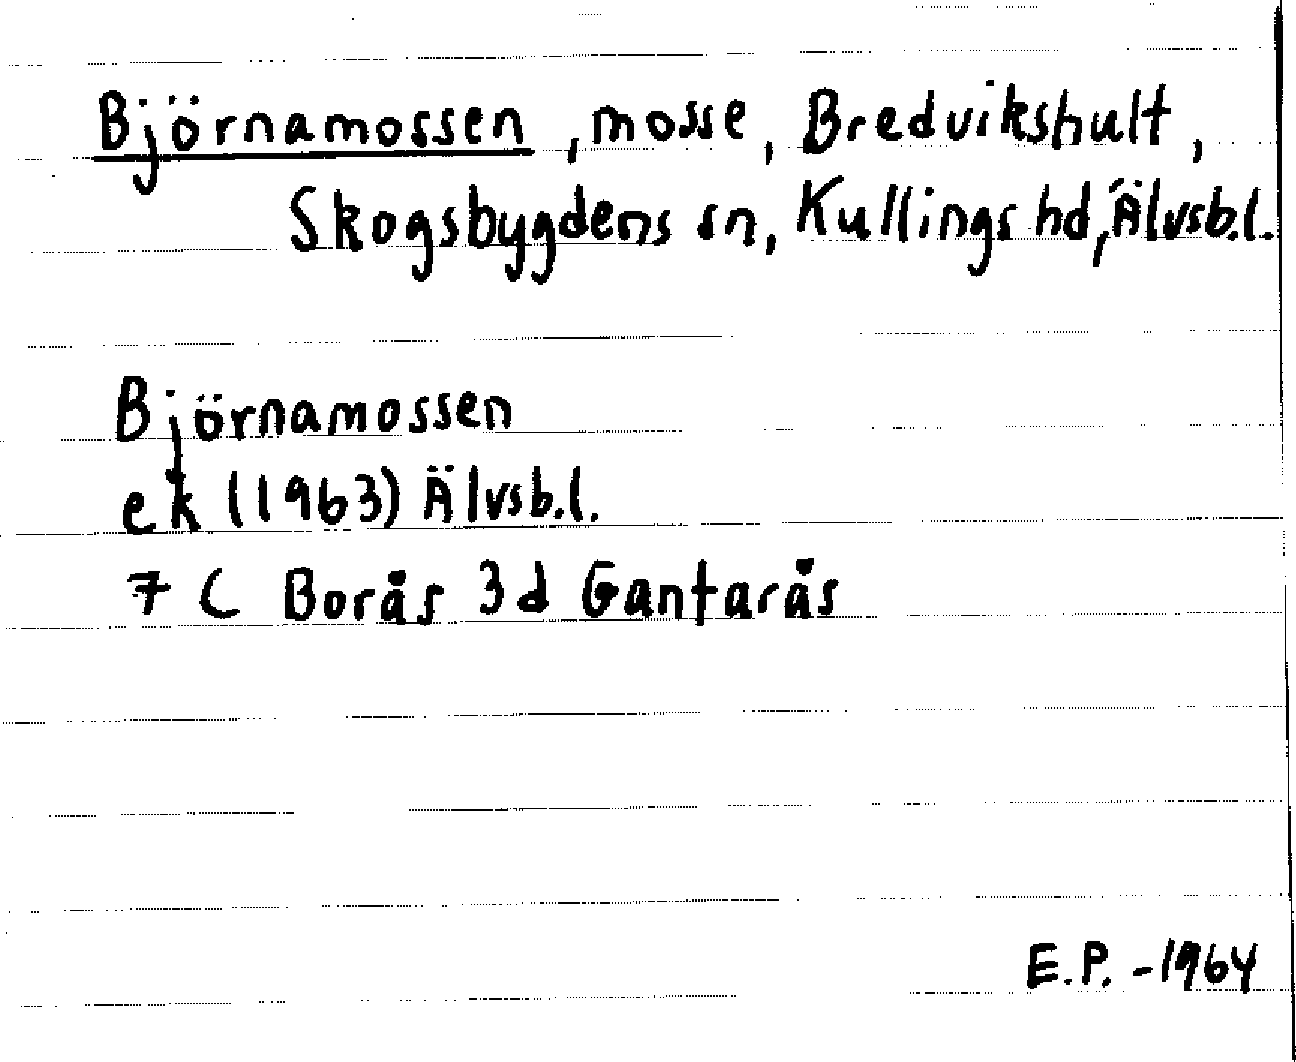 Björnamossen, mosse, Bredvikshult,
Skogsbygdens sn, Kullings hd, Älvsb.l.
Björnamossen
ek (1963) Älvsb.l.
7 C Borås 3d Gantarås
E.P. -1964